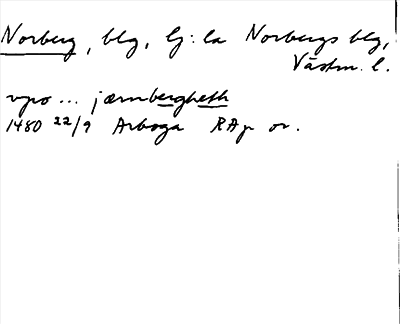 Norberg, blg, Gla Norbergs blg,
Västm. l.
vpo ... jærnbergheth
1480 22/9 Arboga RAp or.